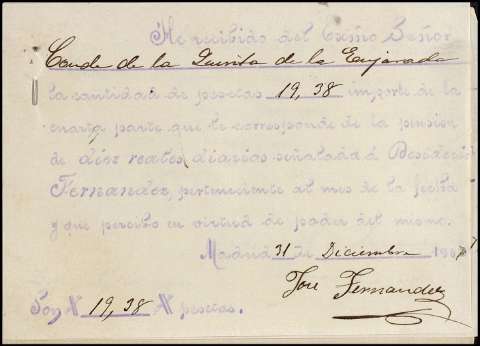 He recibido del Excmo Señor
Conde de la Quinta de la Enjarada
la cantidad de pesetas 19,38 importe de la
cuarta parte que le corresponde de la pension
de diez reales diarios señalada á Desiderio
Fernandez, perteneciente al mes de la fecha
y que percibo en virtud de poder del mismo.
Madrid 31 de Diciembre 190
José Fernandez
Son # 19,38 # pesetas.